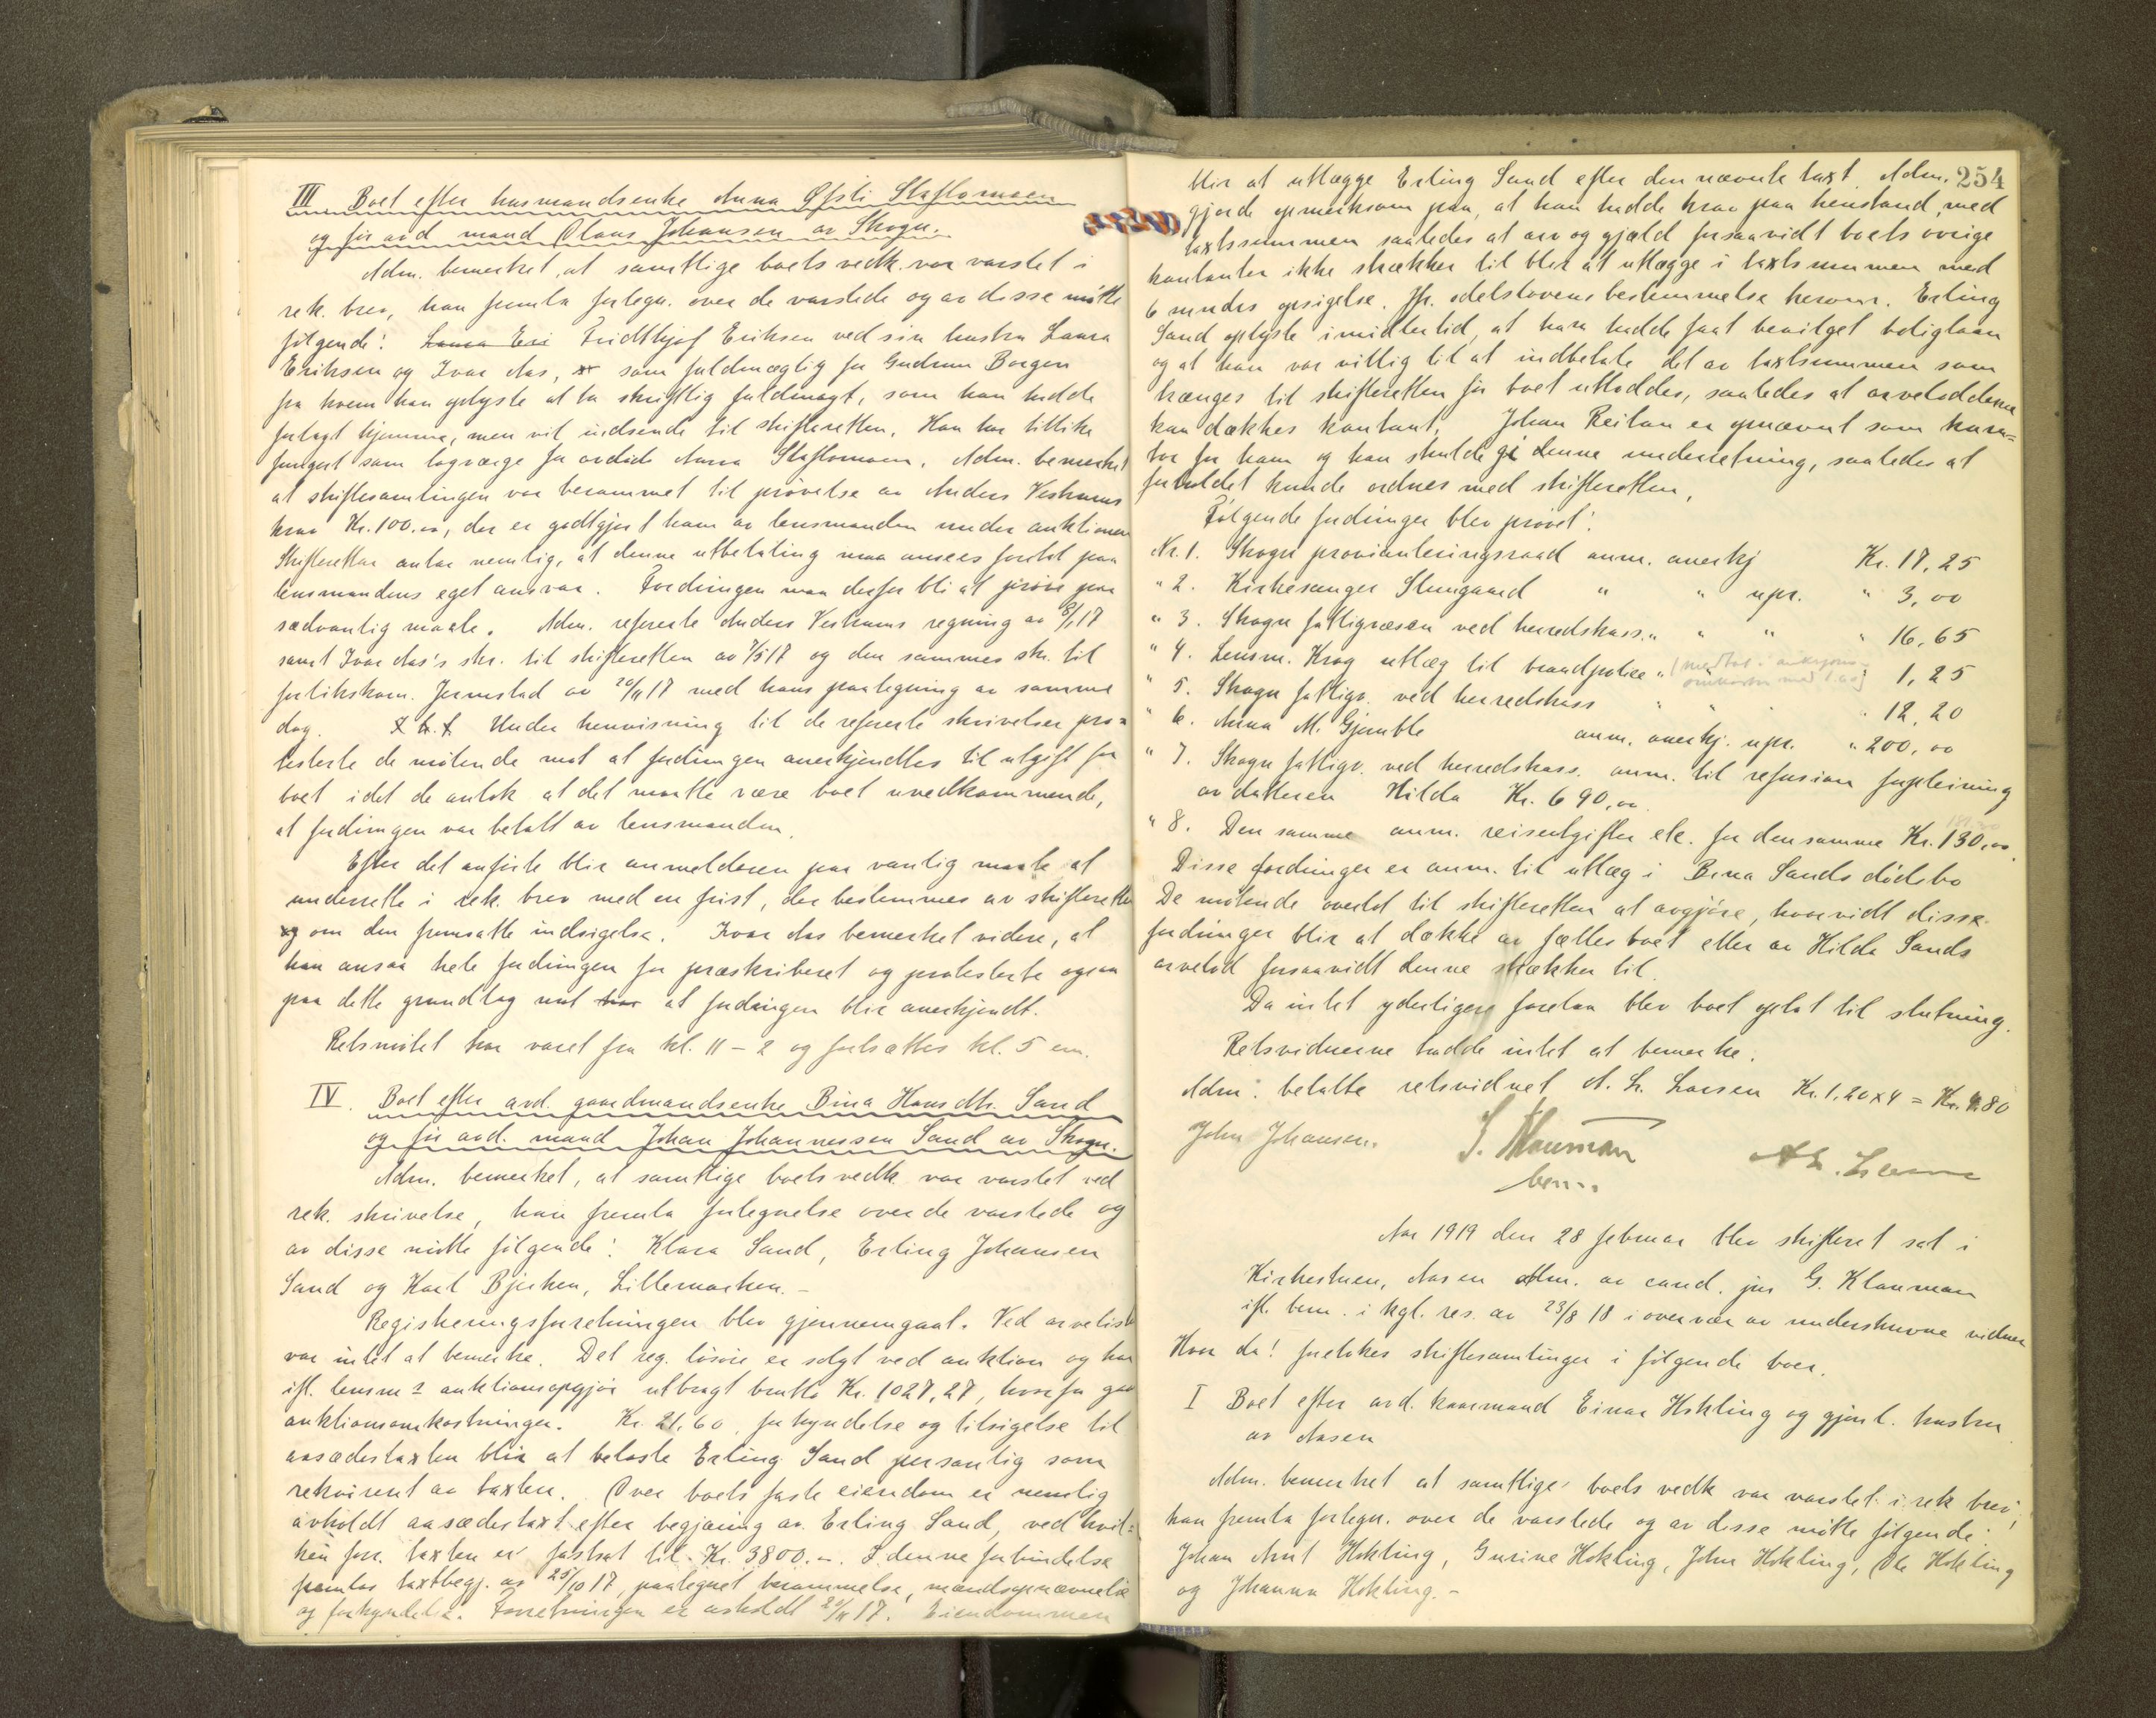 III Boet efter husmandsenke Anna Øfsti Slaflomoen
og før avd mand Olaus Johansen av Skogn.
Adm. bemerket, at samtlige boets vedk. var varslet i
rek. brev, han fremla fortegn. over de varslede og av disse møtte
følgende: Laura Eri Fridthjof Eriksen ved sin hustru Laura
Eriksen og Ivar Aas, som fuldmægtig for Gudrun Borgen
fra hvem han oplyste at ha skriftlig fuldmagt, som han hadde
forlagt hjemme, men vil indsende til skifteretten. Han har tillike
fungert som lagværge for avdøde Anna Slaflomoen. Adm. bemerket
at skiftesamlingen var berammet til prøvelse av Anders Veshums
krav Kr. 100.00, der er godtgjort ham av lensmanden under auktionen
Skifteretten antar nemlig, at denne utbetaling maa ansees foretat paa
lensmandens eget ansvar. Fordringen maa derfor bli at prøve paa
sædvanlig maate. Adm. refererte Anders Veshums regning av 8/1 17
samt Ivar Aas's skr. til skifteretten av 7/5 17 og den sammes skr. til
forlikskom. Jermstad av 20/11 17 med hans paategning av samme
dag. Under henvisning til de refererte skrivelser pro=
testerte de møtende mot at fordringen anerkjendtes til utgift for
boet idet de antok at det maatte være boet uvedkommende,
at fordringen var betalt av lensmanden.
Efter det anførte blir anmelderen paa vanlig maate at
underrette i rek. brev med en frist, der bestemmes av skifteretten
og om den fremsatte indsigelse. Ivar Aas bemerket videre, at
han ansaa hele fordringen for præskriberet og protesterte ogsaa
paa dette grundlag mot at fordringen blir anerkjendt.
Retsmøtet har varet fra kl. 11 – 2 og fortsættes kl. 5 em.
IV. Boet efter avd. gaardmandsenke Bina Hansdtr. Sand
og før avd. mand Johan Johannessen Sand av Skogn.
Adm. bemerket, at samtlige boets vedk. var varslet ved
rek. skrivelse, han fremla fortegnelse over de varslede og
av disse møtte følgende: Klara Sand, Erling Johansen
Sand og Karl Bjerken, Lillemarken. –
Registreringsforretningen blev gjennemgaat. Ved arveliste
var intet at bemerke. Det reg. løsøre er solgt ved auktion og har
ifl. lensm.s auktionsopgjør utbragt brutto Kr. 1027,27, hvorfra gaar
auktionsomkostninger. Kr. 21,60, forkyndelse og tilsigelse til
aasædestaxten blir at belaste Erling Sand personlig som
rekvirent av taxten. Over boets faste eiendom er nemlig
avholdt aasædestaxt efter begjæring av Erling Sand, ved hvil=
ken forr. taxten er fastsat til Kr. 3800.–. I denne forbindelse
fremlas taxtbegj. av 25/10 17, paategnet berammelse, mandsopnævnelse
og forkyndelse. Forretningen er avholdt 20/11 17. Eiendommen
254
blir at utlægge Erling Sand efter den nævnte taxt. Adm.
gjorde opmerksom paa, at han hadde krav paa henstand med
taxtsummen saaledes at arv og gjæld forsaavidt boets øvrige
kontanter ikke strækker til blir at utlægge i taxtsummen med
6 mndrs opsigelse. Jfr. odelslovens bestemmelse herom. Erling
Sand oplyste imidlertid, at han hadde faat bevilget boliglaan
og at han var villig til at indbetale det av taxtsummen som
trænges til skifteretten før boet utloddes, saaledes at arvelodderne
kan dækkes kontant. Johan Reitan er opnævnt som kura=
tor for ham og han skulde gi denne underretning, saaledes at
forholdet kunde ordnes med skifteretten.
Følgende fordringer blev prøvet:
Nr. 1. Skogn provianteringsraad anm. anerkj Kr. 17,25
" 2. Kirkesanger Stungaard " " upr. " 3,00
" 3. Skogn fattigvæsen ved herredskass. " " " " 16,65
" 4. Lensm. Krog utlæg til brandpolice " 1,25
" 5. Skogn fattigv. ved herredskass " " " 12,20
" 6. Anna M. Gjemble anm. anerkj. upr. " 200,00
" 7. Skogn fattigv. ved herredskass. anm. til refusion forpleining
av datteren Hilda Kr. 690,00.
" 8. Den samme anm. reiseutgifter etc. for densamme Kr. 130,00
Disse fordringer er anm. til utlæg i Bina Sands dødsbo
De møtende overlot til skifteretten at avgjøre, hvorvidt disse
fordringer blir at dække av fælles boet eller av Hilda Sands
arvelod forsaavidt denne strækker til.
Da intet yderligere forelaa blev boet oplat til slutning.
Retsvidnerne hadde intet at bemerke.
Adm. betalte retsvidnet A. L. Larsen Kr. 1,20 x 4 = Kr. 4,80
John Johansen. G. Klouman A L. Larsen
bem.
Aar 1919 den 28 februar blev skifteret sat i
Kirkestuen, Aasen Adm. av cand. jur G. Klouman
ifl. bem. i kgl. res. av 23/8 18 i overvær av underskrevne vidner
Hvor da! foretokes skiftesamlinger i følgende boer.
I Boet efter avd. kaarmand Einar Hokling og gjenl. hustru
av Aasen
Adm. bemerket at samtlige boets vedk var varslet i rek brev,
han fremla fortegn. over de varslede og av disse møtte følgende:
Johan Arnt Hokling, Gurine Hokling, John Hokling, Ole Hokling
og Johanna Hokling. –